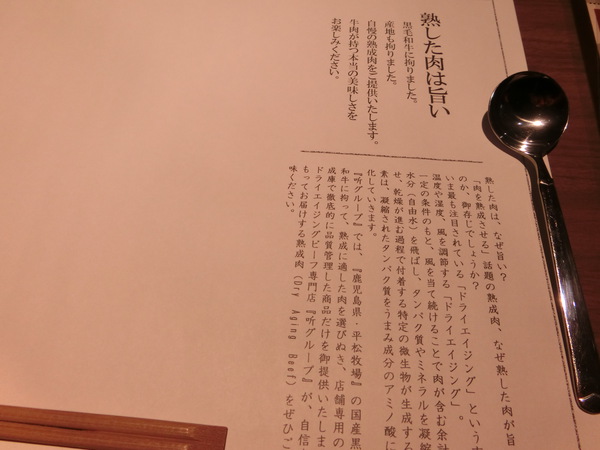 熟した肉は旨い
黒毛和牛に拘りました。
産地も拘りました。
自慢の熟成肉をご提供いたします。
牛肉が持つ本当の美味しさを
お楽しみください。
熟した肉は、なぜ旨い？
「肉を熟成させる」話題の熟成肉、なぜ熟した肉が旨
のか、御存じでしょうか？
いま最も注目されている「ドライエイジング」という
温度や湿度、風を調節する「ドライエイジング」。
一定の条件のもと、風を当て続けることで肉が含む余計
水分（自由水）を飛ばし、タンパク質やミネラルを凝縮
せ、乾燥が進む過程で付着する特定の微生物が生成する
素は、凝縮されたタンパク質をうまみ成分のアミノ酸に
化していきます。
『听グループ』では、『鹿児島県・平松牧場』の国産黒
和牛に拘って、熟成に適した肉を選びぬき、店舗専用の
成庫で徹底的に品質管理した商品だけを御提供いたしま
ドライエイジングビーフ専門店『听グループ』が、自信
もってお届けする熟成肉（Dry Aging Beef）をぜひご
味ください。